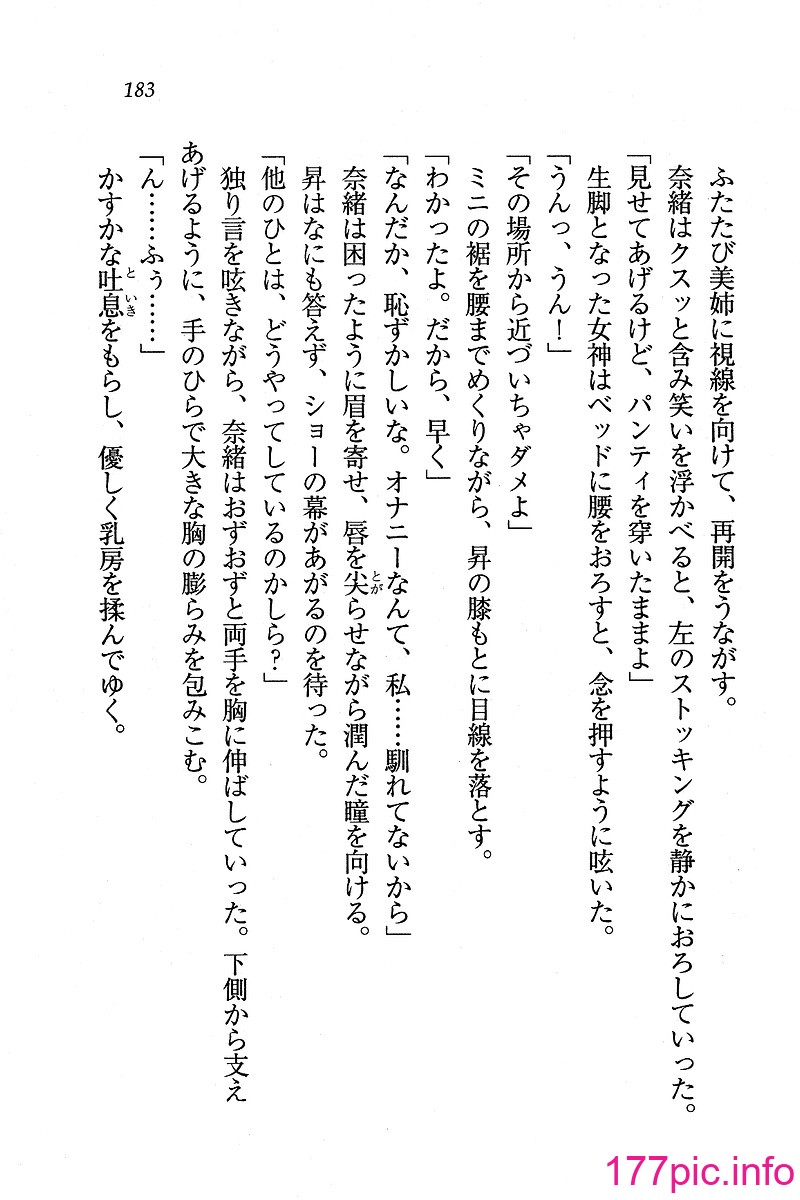 183
ふたたび美姉に視線を向けて、再開をうながす。
奈緒はクスッと含み笑いを浮かべると、左のストッキングを静かにおろしていった。
「見せてあげるけど、パンティを穿いたままよ」
生脚となった女神はベッドに腰をおろすと、念を押すように呟いた。
「うんっ、うん！」
「その場所から近づいちゃダメよ」
ミニの裾を腰までめくりながら、昇の膝もとに目線を落とす。
「わかったよ。だから、早く」
「なんだか、恥ずかしいな。オナニーなんて、私……馴れてないから」
奈緒は困ったように眉を寄せ、唇を尖らせながら潤んだ瞳を向ける。
昇はなにも答えず、ショーの幕があがるのを待った。
「他のひとは、どうやってしているのかしら？」
独り言を呟きながら、奈緒はおずおずと両手を胸に伸ばしていった。下側から支え
あげるように、手のひらで大きな胸の膨らみを包みこむ。
「ん……ふぅ……」
かすかな吐息をもらし、優しく乳房を揉んでゆく。
177pic.info